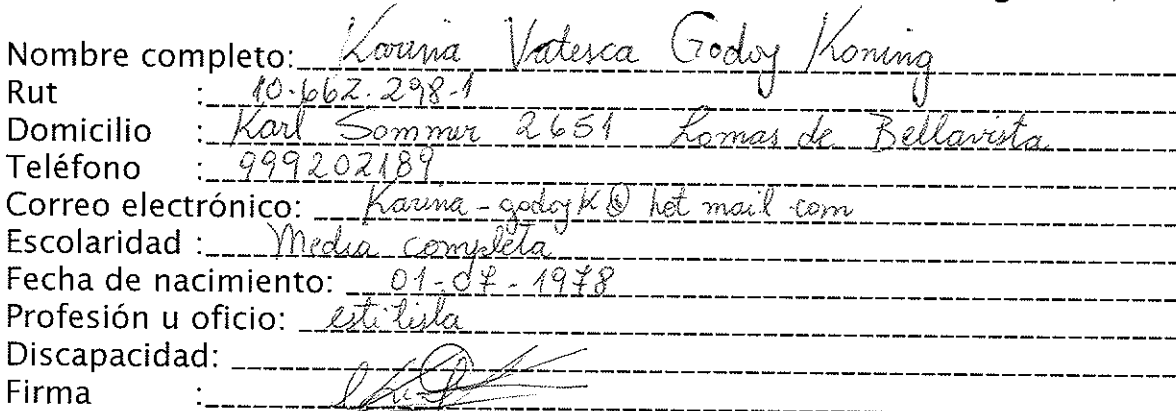 Nombre completo: Karina Valesca Godoy Koning
Rut : 10.662.298-1
Domicilio : Karl Sommer 2651 Lomas de Bellavista
Teléfono : 999202189
Correo electrónico: Karina-godoyK@hotmail.com
Escolaridad : Media completa
Fecha de nacimiento: 01-07-1978
Profesión u oficio: estilista
Discapacidad:
Firma :